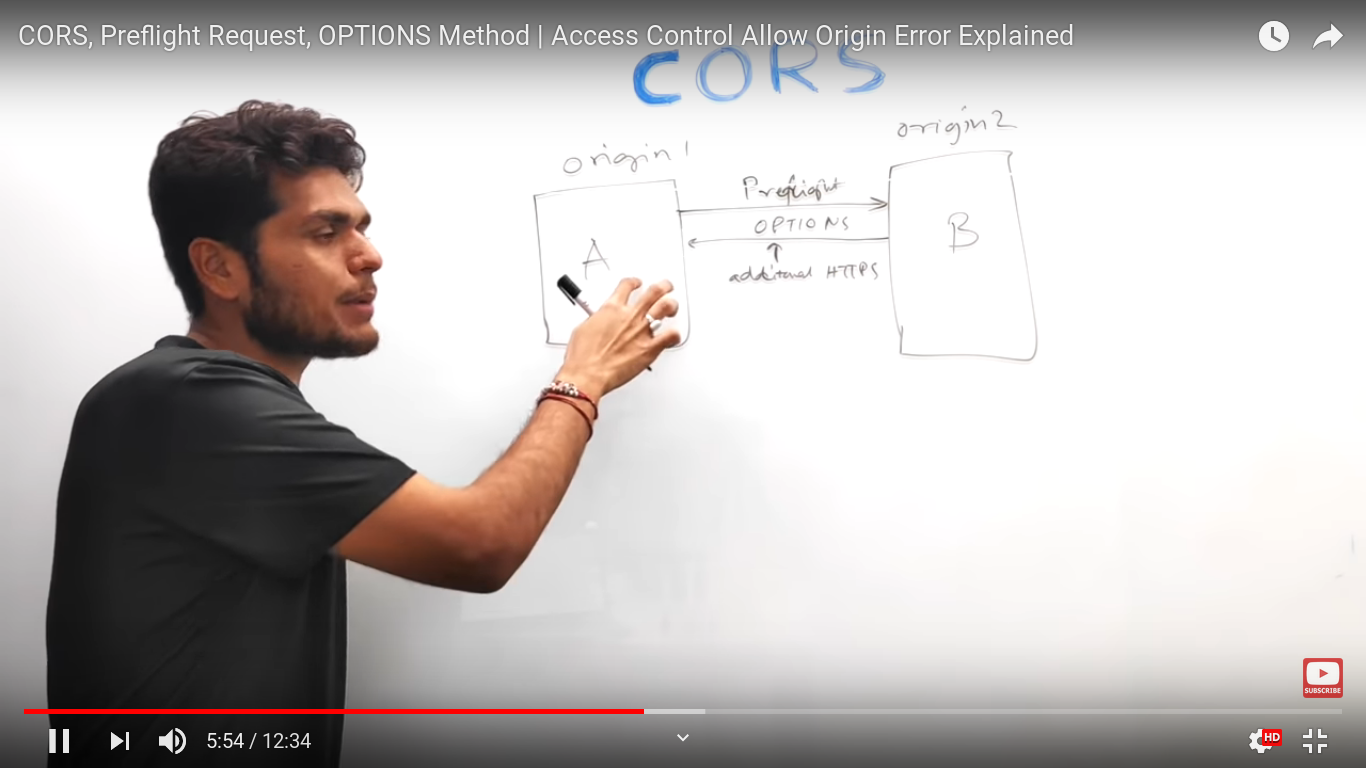 CORS, Preflight Request, OPTIONS Method | Access Control Allow Origin Error Explained
CORS
origin 1
origin 2
Preflight
OPTIONS
A
B
additional HTTPS
SUBSCRIBE
5:54 / 12:34
HD